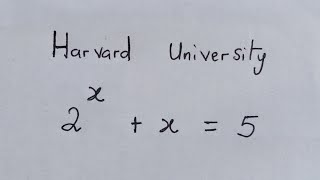 Harvard University
2^x + x = 5